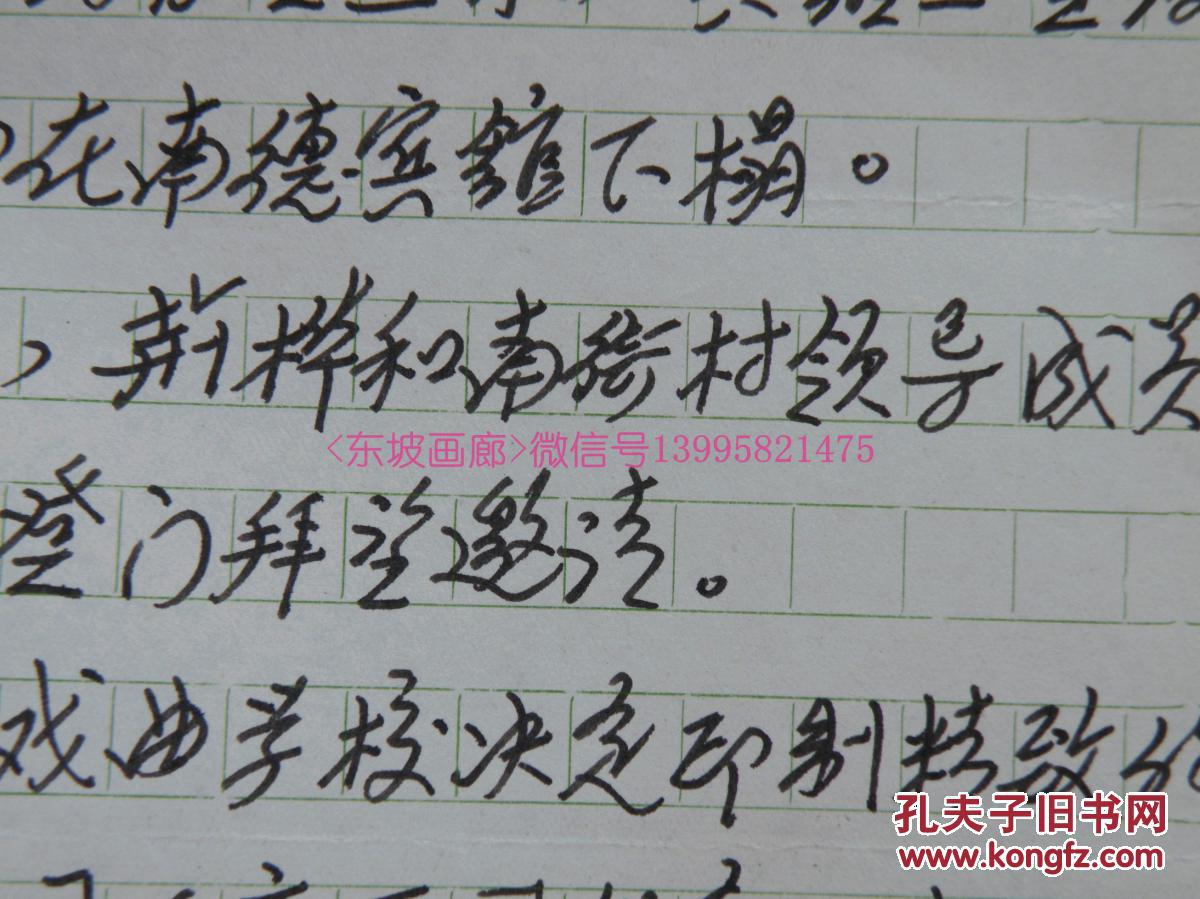 在南德宾馆下榻。
，荆桦和南街村领导成员
<东坡画廊>微信号13995821475
登门拜望邀请。
戏曲学校决定印制精致的
孔夫子旧书网
www.kongfz.com